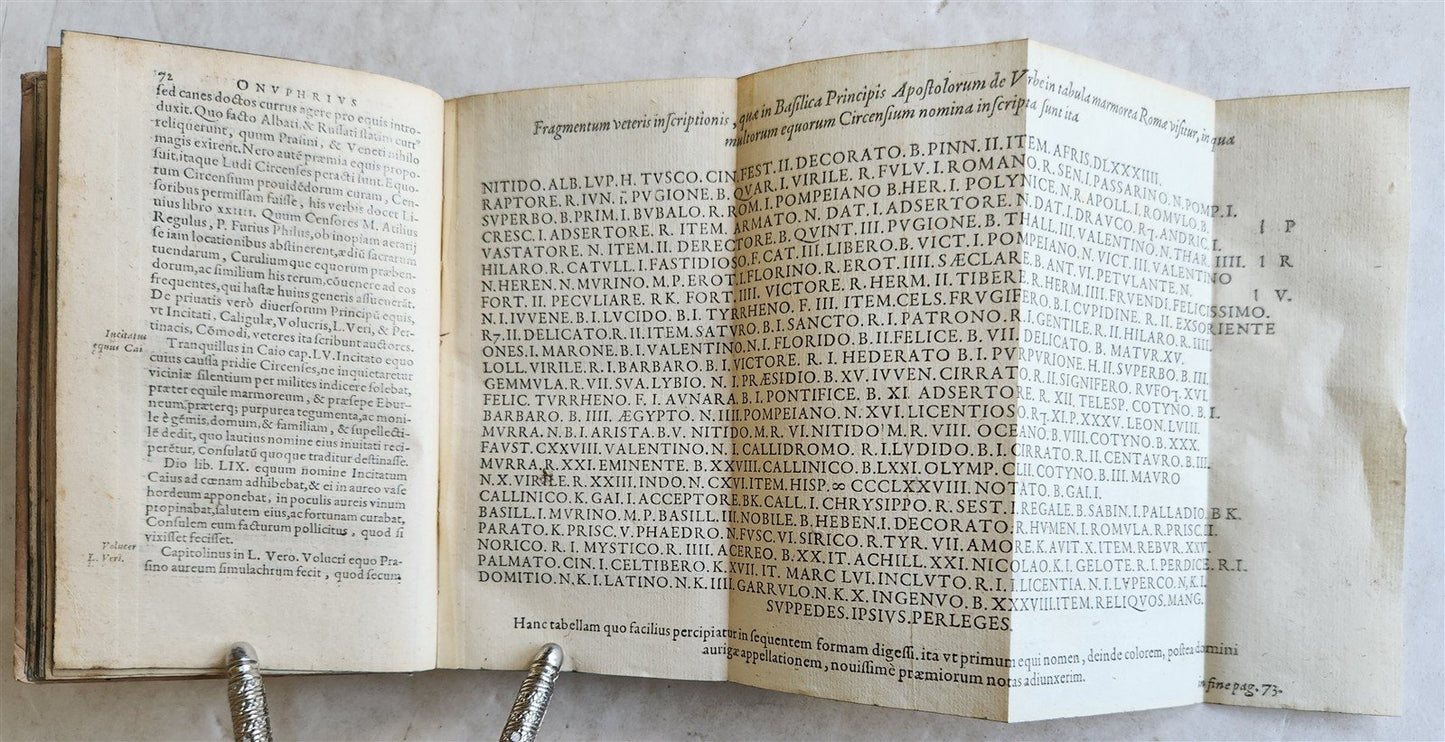 72
ONVPHRIVS
sed canes doctos currus agere pro equis intro-
duxit. Quo facto Albati, & Russati statim currᵉ
reliquerunt, quum Prasini, & Veneti nihilo
magis exirent. Nero autē præmia equis propo-
suit, itaque Ludi Circenses peracti sunt. Equo-
rum Circensium prouidēdorum curam, Cen-
soribus permissam fuisse, his verbis docet Li-
uius libro XXIIII. Quum Censores M. Atilius
Regulus, P. Furius Philus, ob inopiam aerarij
se iam locationibus abstinerent, ædiū sacrarum
tuendarum, Curulium que equorum præben-
dorum, ac similium his rerum, cōuenere ad eos
frequentes, qui hastæ huius generis assueuerāt.
De priuatis verò diuersorum Principū equis,
vt Incitati, Caligulæ, Volucris, L. Veri, & Per-
tinacis, Cōmodi, veteres ita scribunt auctores.
Incitatus
equus Cai
Tranquillus in Caio cap. LV. Incitato equo
cuius caussa pridie Circenses, ne inquietaretur
viciniæ silentium per milites indicere solebat,
præter equile marmoreum, & præsepe Ebur-
neum, præterq; purpurea tegumenta, ac moni-
le è gēmis, domum, & familiam, & supellecti-
lē dedit, quo lautius nomine eius inuitati reci-
perētur, Consulatū quoque traditur destinasse.
Dio lib. LIX. equum nomine Incitatum
Caius ad cœnam adhibebat, & ei in aureo vase
hordeum apponebat, in poculis aureis vinum
propinabat, salutem eius, ac fortunam curabat,
Consulem eum facturum pollicitus, quod si
vixisset fecisset.
Volucer
L. Veri.
Capitolinus in L. Vero. Volucri equo Pra-
sino aureum simulachrum fecit, quod secum
Fragmentum veteris inscriptionis, quæ in Basilica Principis Apostolorum de Vrbe in tabula marmorea Romæ visitur, in qua
multorum equorum Circensium nomina inscripta sunt ita
NITIDO. ALB. LVP. H. TVSCO. CIN. FEST. II. DECORATO. B. PINN. II. ITEM. AFRIS. DLXXXIIII.
RAPTORE. R. IVN. I. PVGIONE. B. QVAR. I. VIRILE. R. FVLV. I. ROMANO. R. SEN. I. PASSARINO. N. POMP. I.
SVPERBO. B. PRIM. I. BVBALO. R. ROM. I. POMPEIANO B. HER. I. POLYNICE. N. R. APOLL. I. ROMVLO. B.
CRESC. I. ADSERTORE. R. ITEM. ARMATO. N. DAT. I. ADSERTORE. N. DAT. I. DRAVCO. R. ANDRIC. I P
VASTATORE. N. ITEM. II. DERECTORE. B. QVINT. III. PVGIONE. B. THALL. III. VALENTINO. N. THAR. IIII. I R
HILARO. R. CATVLL. I. FASTIDIOSO. F. CAT. III. LIBERO. B. VICT. I. POMPEIANO. N. VICT. III. VALENTINO
N. HEREN. N. MVRINO. M. P. EROT. I. FLORINO. R. EROT. IIII. SÆCLARE. B. ANT. VI. PETVLANTE. N. I V.
FORT. II. PECVLIARE. RK. FORT. IIII. VICTORE. R. HERM. II. TIBERE. R. HERM. IIII. FRVENDI. FELICISSIMO.
N. I. IVVENE. B. I. LVCIDO. B. I. TYRRHENO. F. III. ITEM. CELS. FRVGIFERO. B. I. CVPIDINE. R. II. EXSORIENTE
R7. II. DELICATO. R. II. ITEM. SATVRO. B. I. SANCTO. R. I. PATRONO. R. I. GENTILE. R. II. HILARO. R. IIII.
ONES. I. MARONE. B. I. VALENTINO. N. I. FLORIDO. B. II. FELICE. B. VII. DELICATO. B. MATVR. XV.
LOLL. VIRILE. R. I. BARBARO. B. I. VICTORE. R. I. HEDERATO B. I. PVRPVRIONE. H. II. SVPERBO. B. III.
GEMMVLA. R. VII. SVA. LYBIO. N. I. PRÆSIDIO. B. XV. IVVEN. CIRRATO. R. II. SIGNIFERO. RVFO7. XVI.
FELIC. TVRRHENO. F. I. AVNARA. B. I. PONTIFICE. B. XI. ADSERTORE. R. XII. TELESP. COTYNO. B. I.
BARBARO. B. IIII. ÆGYPTO. N. IIII. POMPEIANO. N. XVI. LICENTIOSO. R7. XI. P. XXXV. LEON. LVIII.
MVRRA. N. B. I. ARISTA. B. V. NITIDO. M. R. VI. NITIDO M. R. VIII. OCEANO. B. VIII. COTYNO. B. XXX.
FAVST. CXXVIII. VALENTINO. N. I. CALLIDROMO. R. I. LVDIDO. B. I. CIRRATO. R. II. CENTAVRO. B. III.
MVRRA. R. XXI. EMINENTE. B. XXVIII. CALLINICO. B. LXXI. OLYMP. CLII. COTYNO. B. III. MAVRO
N. X. VIRILE. R. XXIII. INDO. N. CXVI. ITEM. HISP. ∞ CCCLXXVIII. NOTATO. B. GAI. I.
CALLINICO. K. GAI. I. ACCEPTORE. BK. CALL. I. CHRYSIPPO. R. SEST. I. REGALE. B. SABIN. I. PALLADIO. B K.
BASILL. I. MVRINO. M. P. BASILL. III. NOBILE. B. HEBEN. I. DECORATO. R. HVMEN. I. ROMVLA. R. PRISC. II.
PARATO. K. PRISC. V. PHAEDRO. N. FVSC. VI. SIRICO. R. TYR. VII. AMORE. K. AVIT. X. ITEM. REBVR. XXV.
NORICO. R. I. MYSTICO. R. IIII. ACEREO. B. XX. IT. ACHILL. XXI. NICOLAO. K. I. GELOTE. R. I. PERDICE. R. I.
PALMATO. CIN. I. CELTIBERO. K. XVII. IT. MARC LVI. INCLVTO. R. I. LICENTIA. N. I. LVPERCO. N. K. I.
DOMITIO. N. K. I. LATINO. N. K. IIII. GARRVLO. N. K. X. INGENVO. B. XXXVIII. ITEM. RELIQVOS. MANG.
SVPPEDES. IPSIVS. PERLEGES.
Hanc tabellam quo facilius percipiatur in sequentem formam digessi. ita vt primum equi nomen, deinde colorem, postea domini
aurigæ appellationem, nouissimè præmiorum notas adiunxerim.
in fine pag. 73.